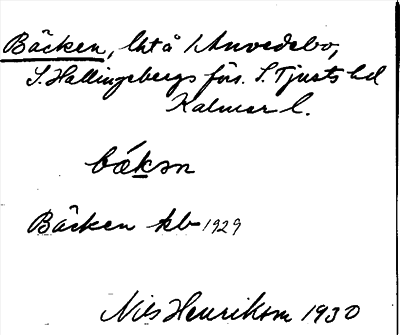 Bäcken, lht å 1 Anvedebo,
S. Hallingebergs förs. S. Tjusts hd
Kalmar l.
bäkən
Bäcken kb 1929
Nils Henrikson 1930